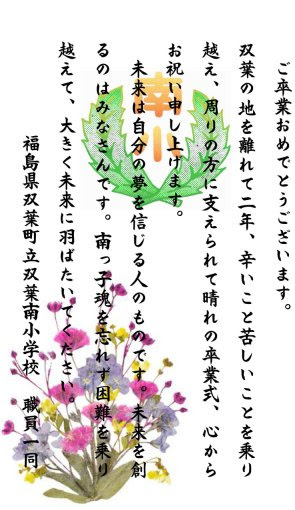 ご卒業おめでとうございます。
双葉の地を離れて二年、辛いこと苦しいことを乗り
越え、周りの方に支えられて晴れの卒業式、心から
お祝い申し上げます。
未来は自分の夢を信じる人のものです。未来を創
るのはみなさんです。南っ子魂を忘れず困難を乗り
越えて、大きく未来に羽ばたいてください。
福島県双葉町立双葉南小学校 職員一同
南小